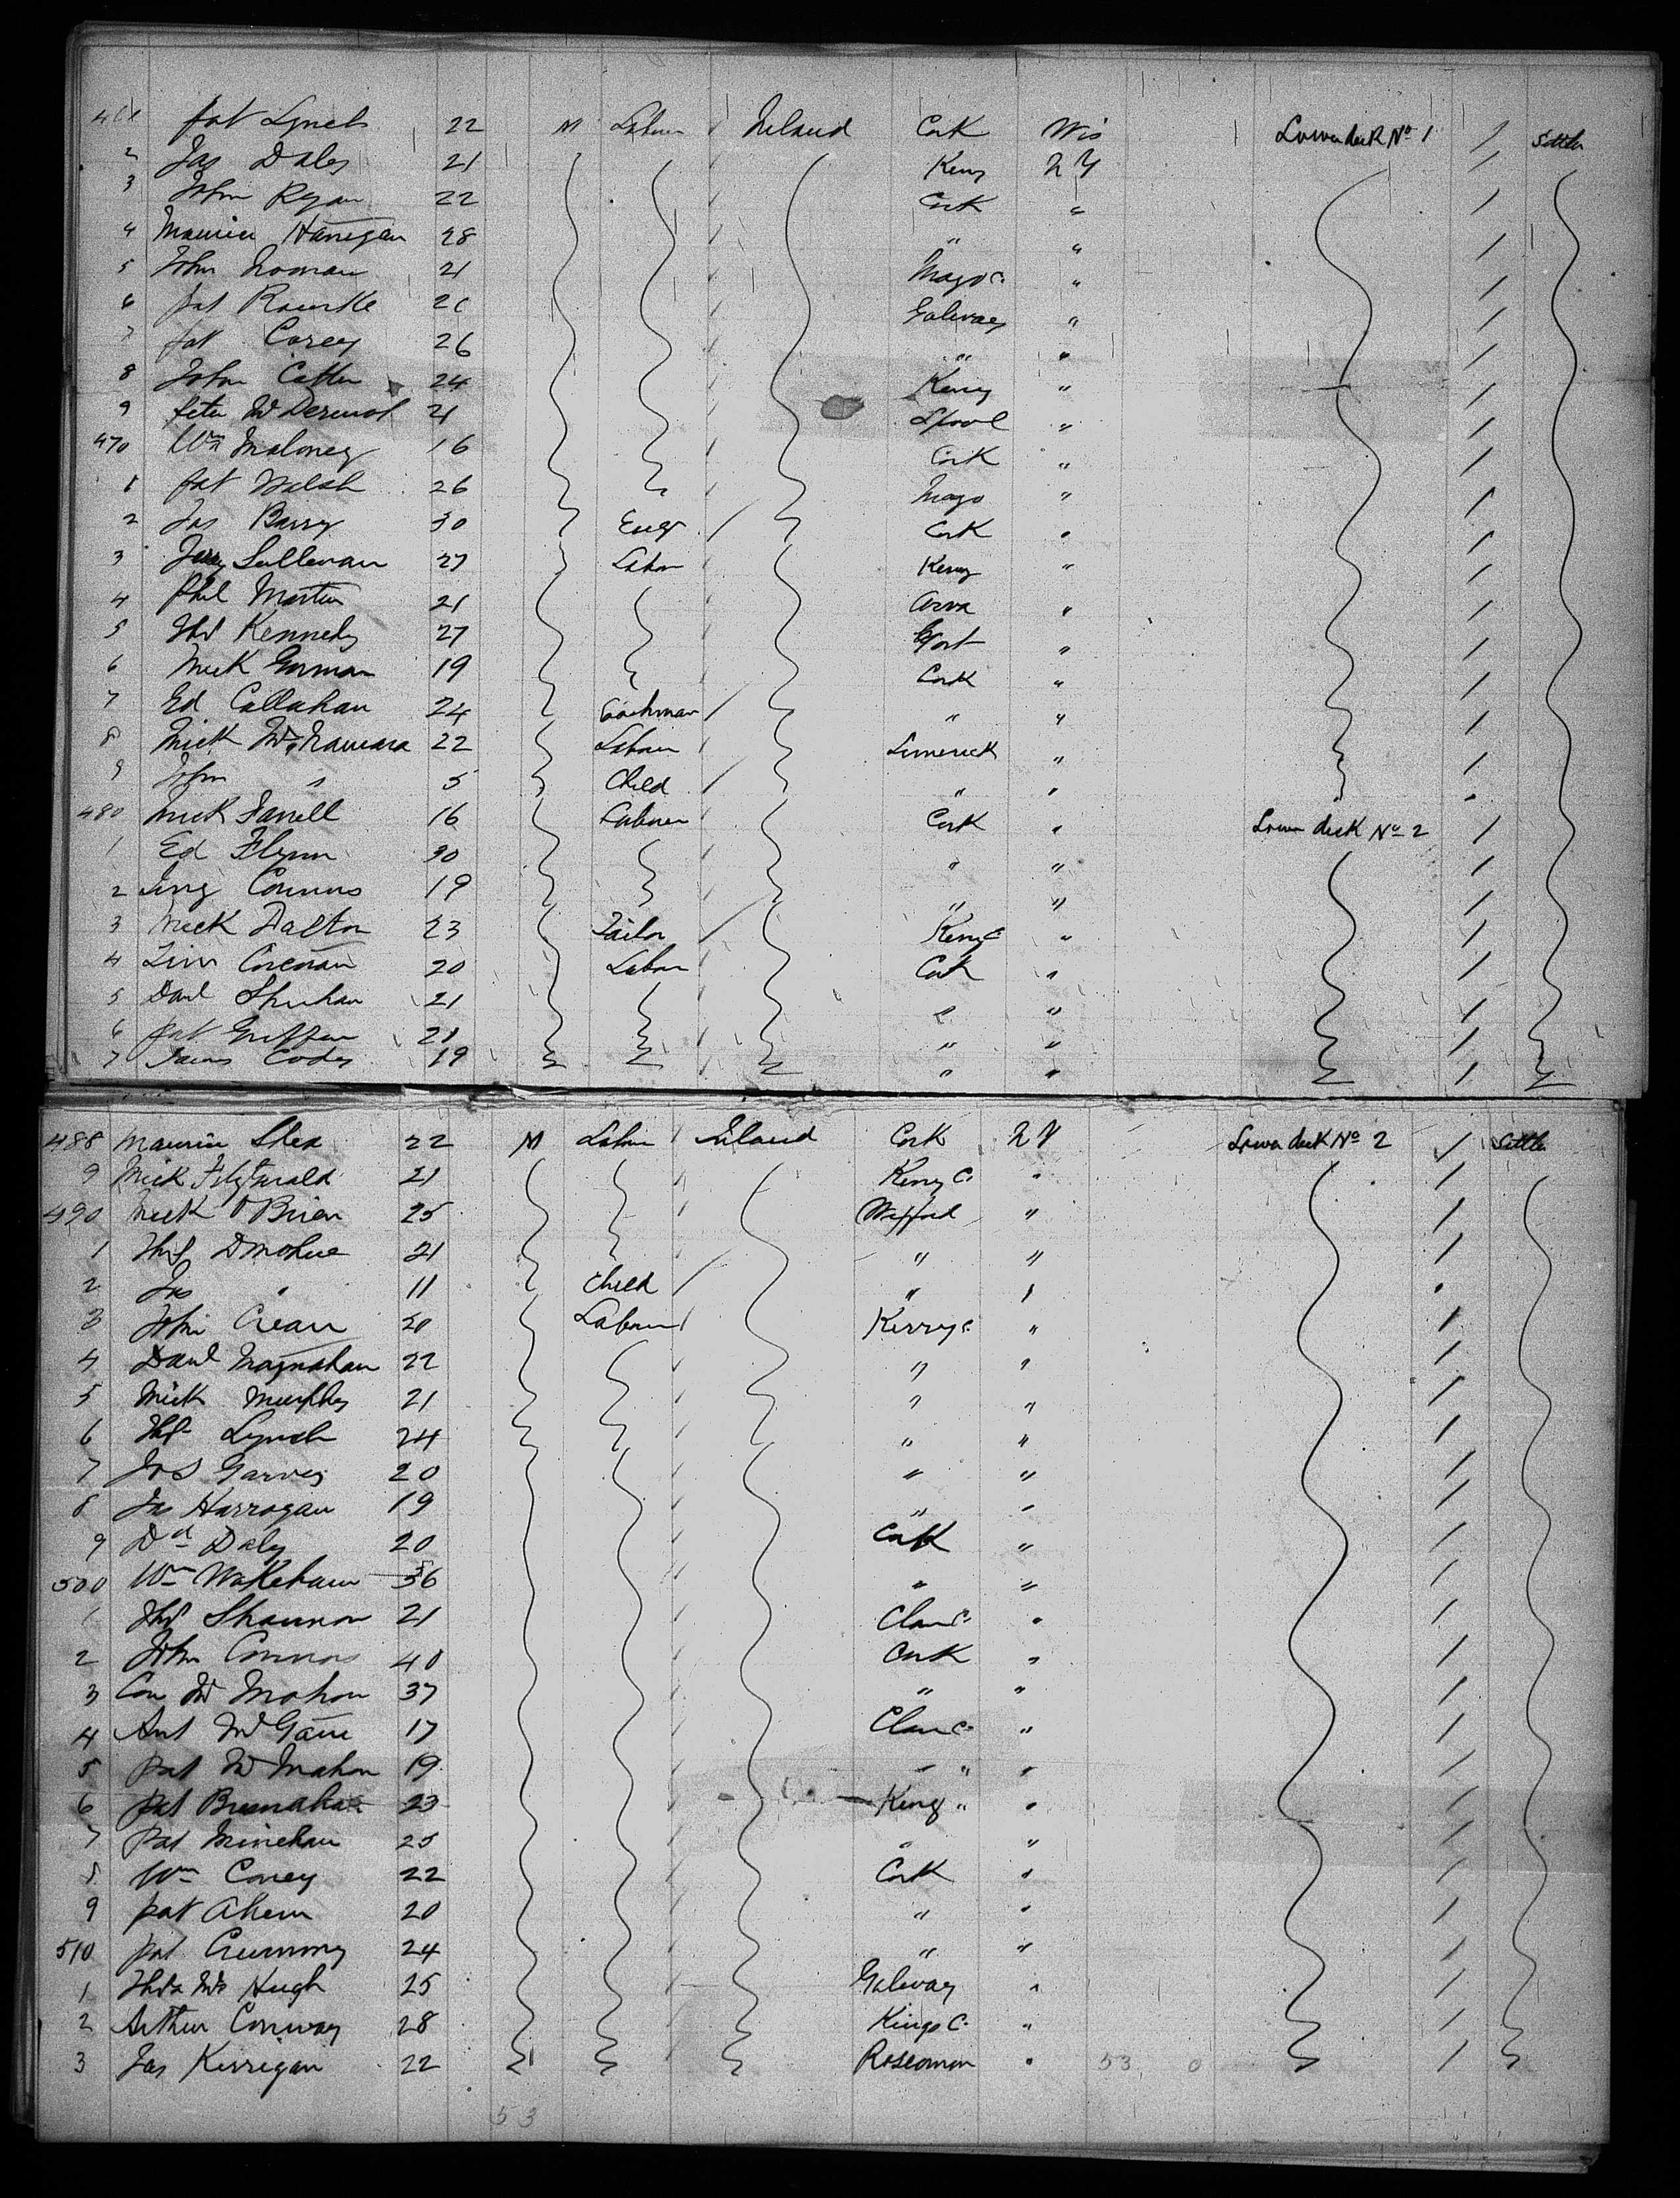 461 Pat Lynch 22 M Labour Ireland Cork Wis Lower deck No 1 / Settler
2 Jas Daley 21 Kerry N Y /
3 John Ryan 22 Cork " /
4 Maurice Hanigan 28 " " /
5 John Noonan 21 Mayo C. " /
6 Pat Rourke 20 Galway " /
7 Pat Carey 26 " " /
8 John Cotter 24 Kerry " /
9 Peter McDermot 21 L'pool " /
470 Wm Maloney 16 Cork " /
1 Pat Walsh 26 Mayo " /
2 Jas Barry 30 Engr / Cork " /
3 Jerry Sullivan 27 Labor Kerry " /
4 Phil Martin 21 Arva " /
5 Thos Kennedy 27 Gort " /
6 Mick Gorman 19 Cork " /
7 Ed Callahan 24 Coachman / " " /
8 Mick McNamara 22 Labour Limerick " /
9 John " 5 Child / " "
480 Mick Farrell 16 Labour Cork " Lower deck No 2 /
1 Ed Flynn 30 " " /
2 Jerry Connors 19 " " /
3 Mick Dalton 23 Tailor / Kerry C " /
4 Tim Corcoran 20 Labor Cork " /
5 Danl Shuhan 21 " " /
6 Pat Griffen 21 " " /
7 James Cody 19 " " /
488 Maurice Shea 22 M Labour Ireland Cork N Y Lower deck No 2 / Settler
9 Mick Fitzgerald 21 Kerry C. " /
490 Mick O'Brien 25 Wexford " /
1 Thos Donohue 21 " " /
2 Jas " 11 Child / " "
3 John Crean 20 Labour Kerry C. " /
4 Danl Moynahan 22 " " /
5 Mick Murphy 21 " " /
6 Thos Lynch 24 " " /
7 Jos Garvey 20 " " /
8 Jas Harrogan 19 " " /
9 Dd Daly 20 Cork " /
500 Wm Wakeham 36 " " /
1 Thos Shannon 21 Clare C. " /
2 John Connors 40 Cork " /
3 Con McMahon 37 " " /
4 Ant McGann 17 Clare C. " /
5 Pat McMahon 19 " " " /
6 Pat Bresnahan 23 Kerry " " /
7 Pat Minehan 25 " " /
8 Wm Covey 22 Cork " /
9 Pat Ahern 20 " " /
510 Pat Crummy 24 " " /
1 Thos McHugh 25 Galway " /
2 Arthur Conway 28 Kings C. " /
3 Jas Kerrigan 22 Roscomon " 53 0 /
53